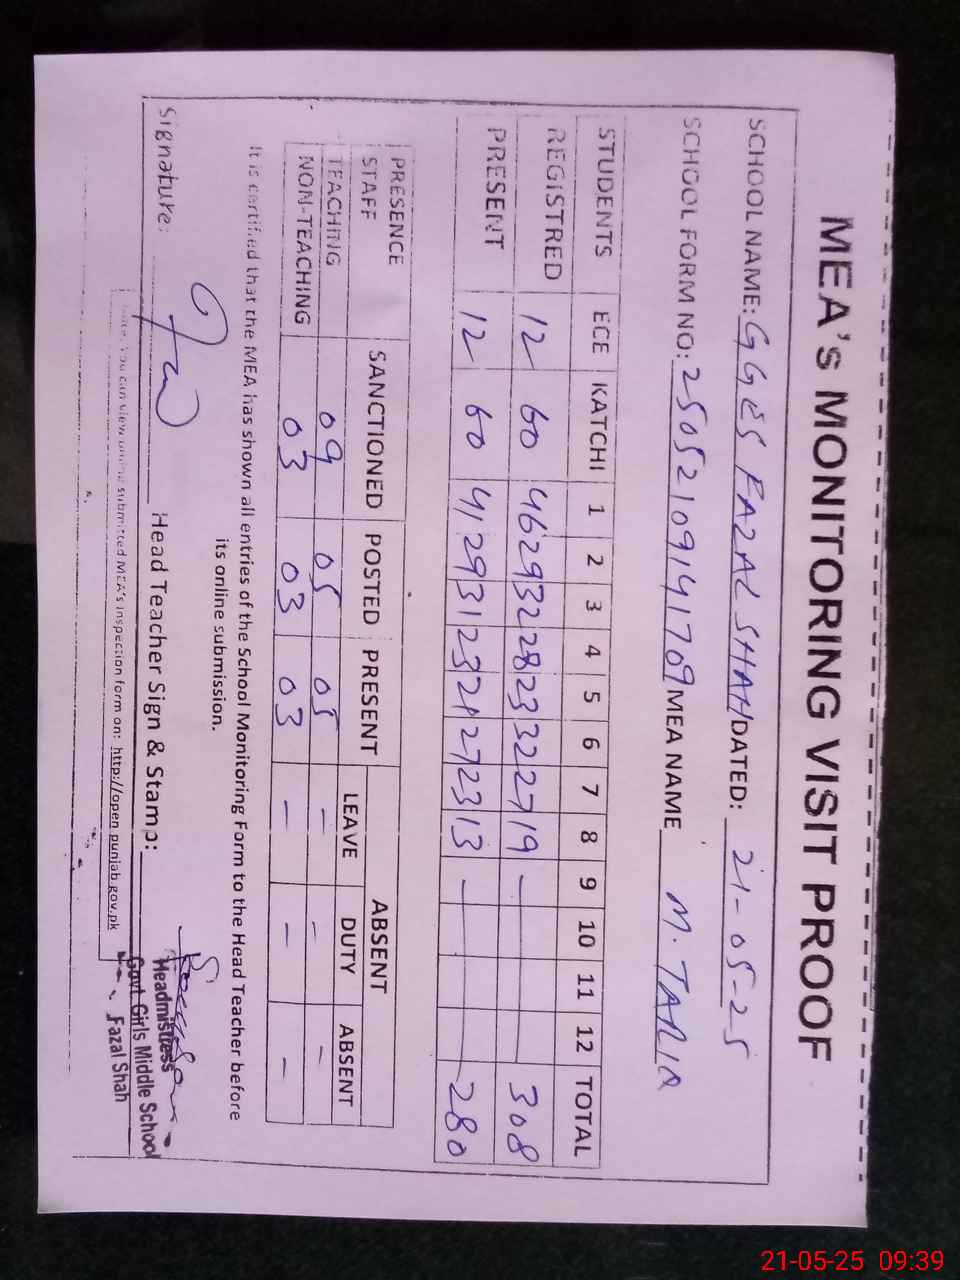 MEA's MONITORING VISIT PROOF
SCHOOL NAME: GGES FAZAL SHAH DATED: 21-05-25
SCHOOL FORM NO: 25052109141709 MEA NAME M. TARIQ
STUDENTS ECE KATCHI 1 2 3 4 5 6 7 8 9 10 11 12 TOTAL
REGISTRED 12 60 46 29 32 28 23 32 27 19 — 308
PRESENT 12 60 41 29 31 23 21 27 23 13 — 280
PRESENCE STAFF SANCTIONED POSTED PRESENT ABSENT
LEAVE DUTY ABSENT
TEACHING 09 05 05 – – –
NON-TEACHING 03 03 03 – – –
It is certified that the MEA has shown all entries of the School Monitoring Form to the Head Teacher before
its online submission.
Signature: Head Teacher Sign & Stamp:
Headmistress
Govt Girls Middle School
Fazal Shah
Note: You can view online submitted MEA's inspection form on: http://open.punjab.gov.pk
21-05-25 09:39